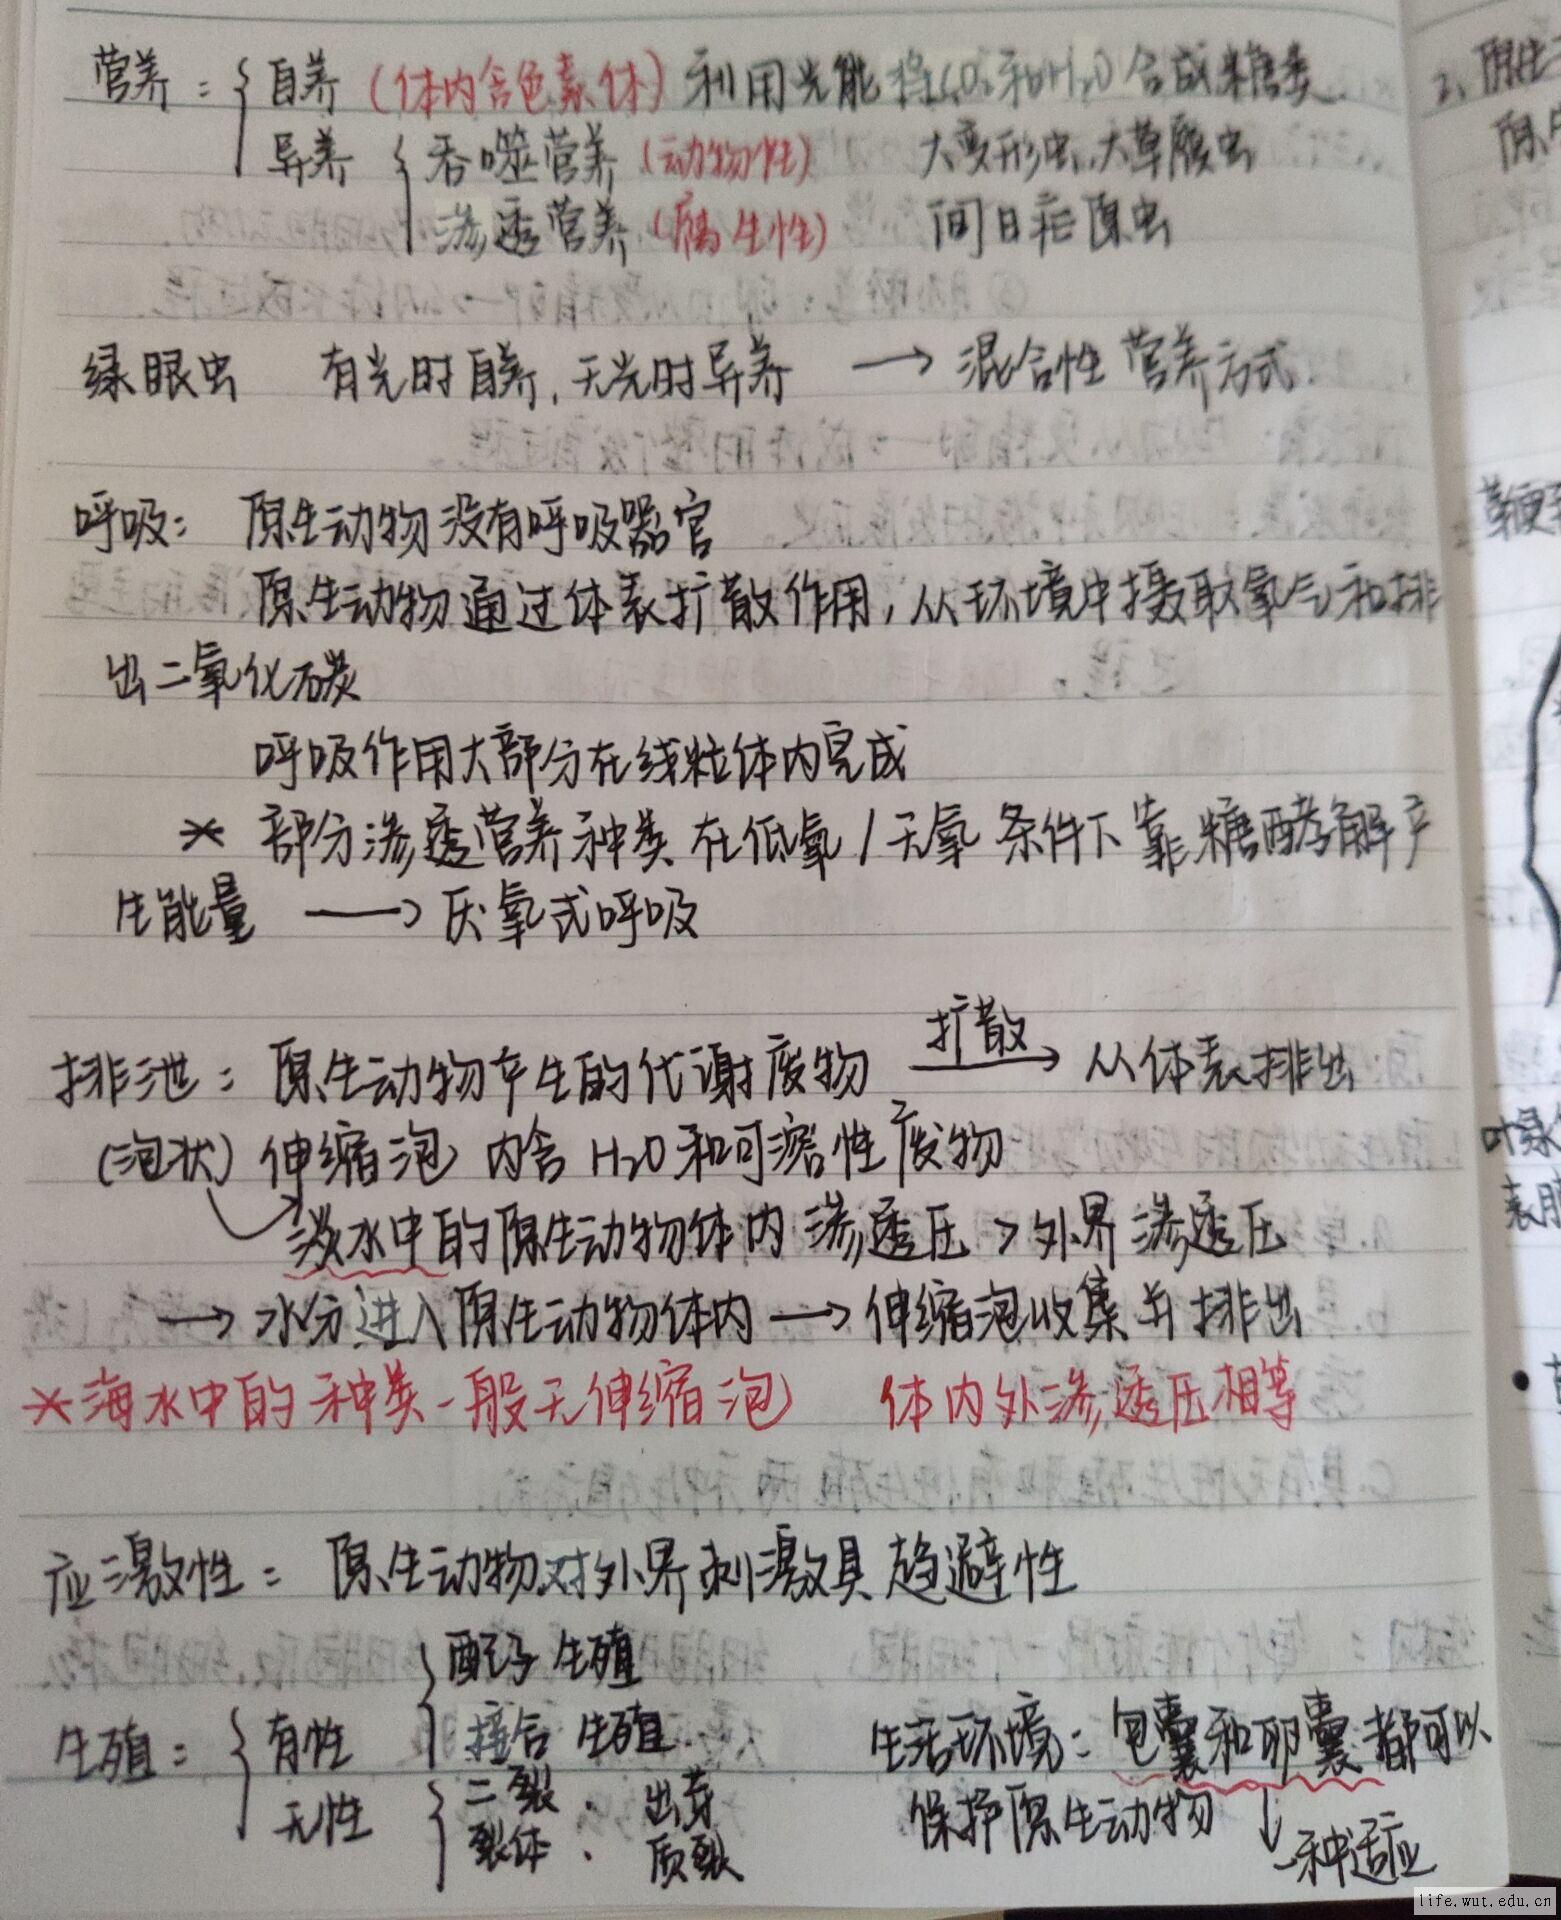 营养：自养（体内含色素体）利用光能将CO₂和H₂O合成糖类
异养 吞噬营养（动物性） 大变形虫、大草履虫
渗透营养（腐生性） 间日疟原虫
绿眼虫 有光时自养，无光时异养 → 混合性营养方式
呼吸：原生动物没有呼吸器官
原生动物通过体表扩散作用，从环境中摄取氧气和排
出二氧化碳
呼吸作用大部分在线粒体内完成
* 部分渗透营养种类在低氧/无氧条件下靠糖酵解产
生能量 → 厌氧式呼吸
扩散
排泄：原生动物产生的代谢废物 → 从体表排出
（泡状）伸缩泡 内含H₂O和可溶性废物
淡水中的原生动物体内渗透压 > 外界渗透压
→ 水分进入原生动物体内 → 伸缩泡收集并排出
*海水中的种类一般无伸缩泡 体内外渗透压相等
应激性：原生动物对外界刺激具趋避性
配子生殖
生殖：有性 接合生殖
无性 二裂、出芽
裂体、质裂
生活环境：包囊和卵囊都可以
保护原生动物 ↓一种适应
2、原生
原生
叶绿
表膜
life.wut.edu.cn